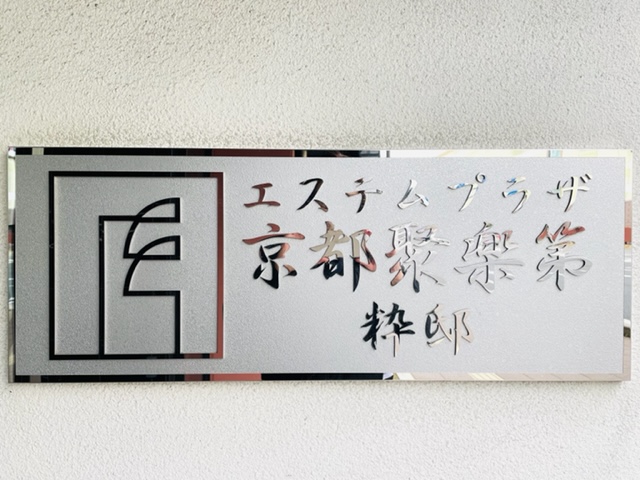 エステムプラザ
京都聚楽第
粋邸